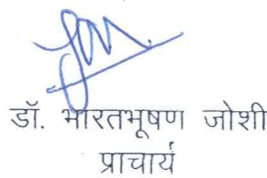 डॉ. भारतभूषण जोशी
प्राचार्य